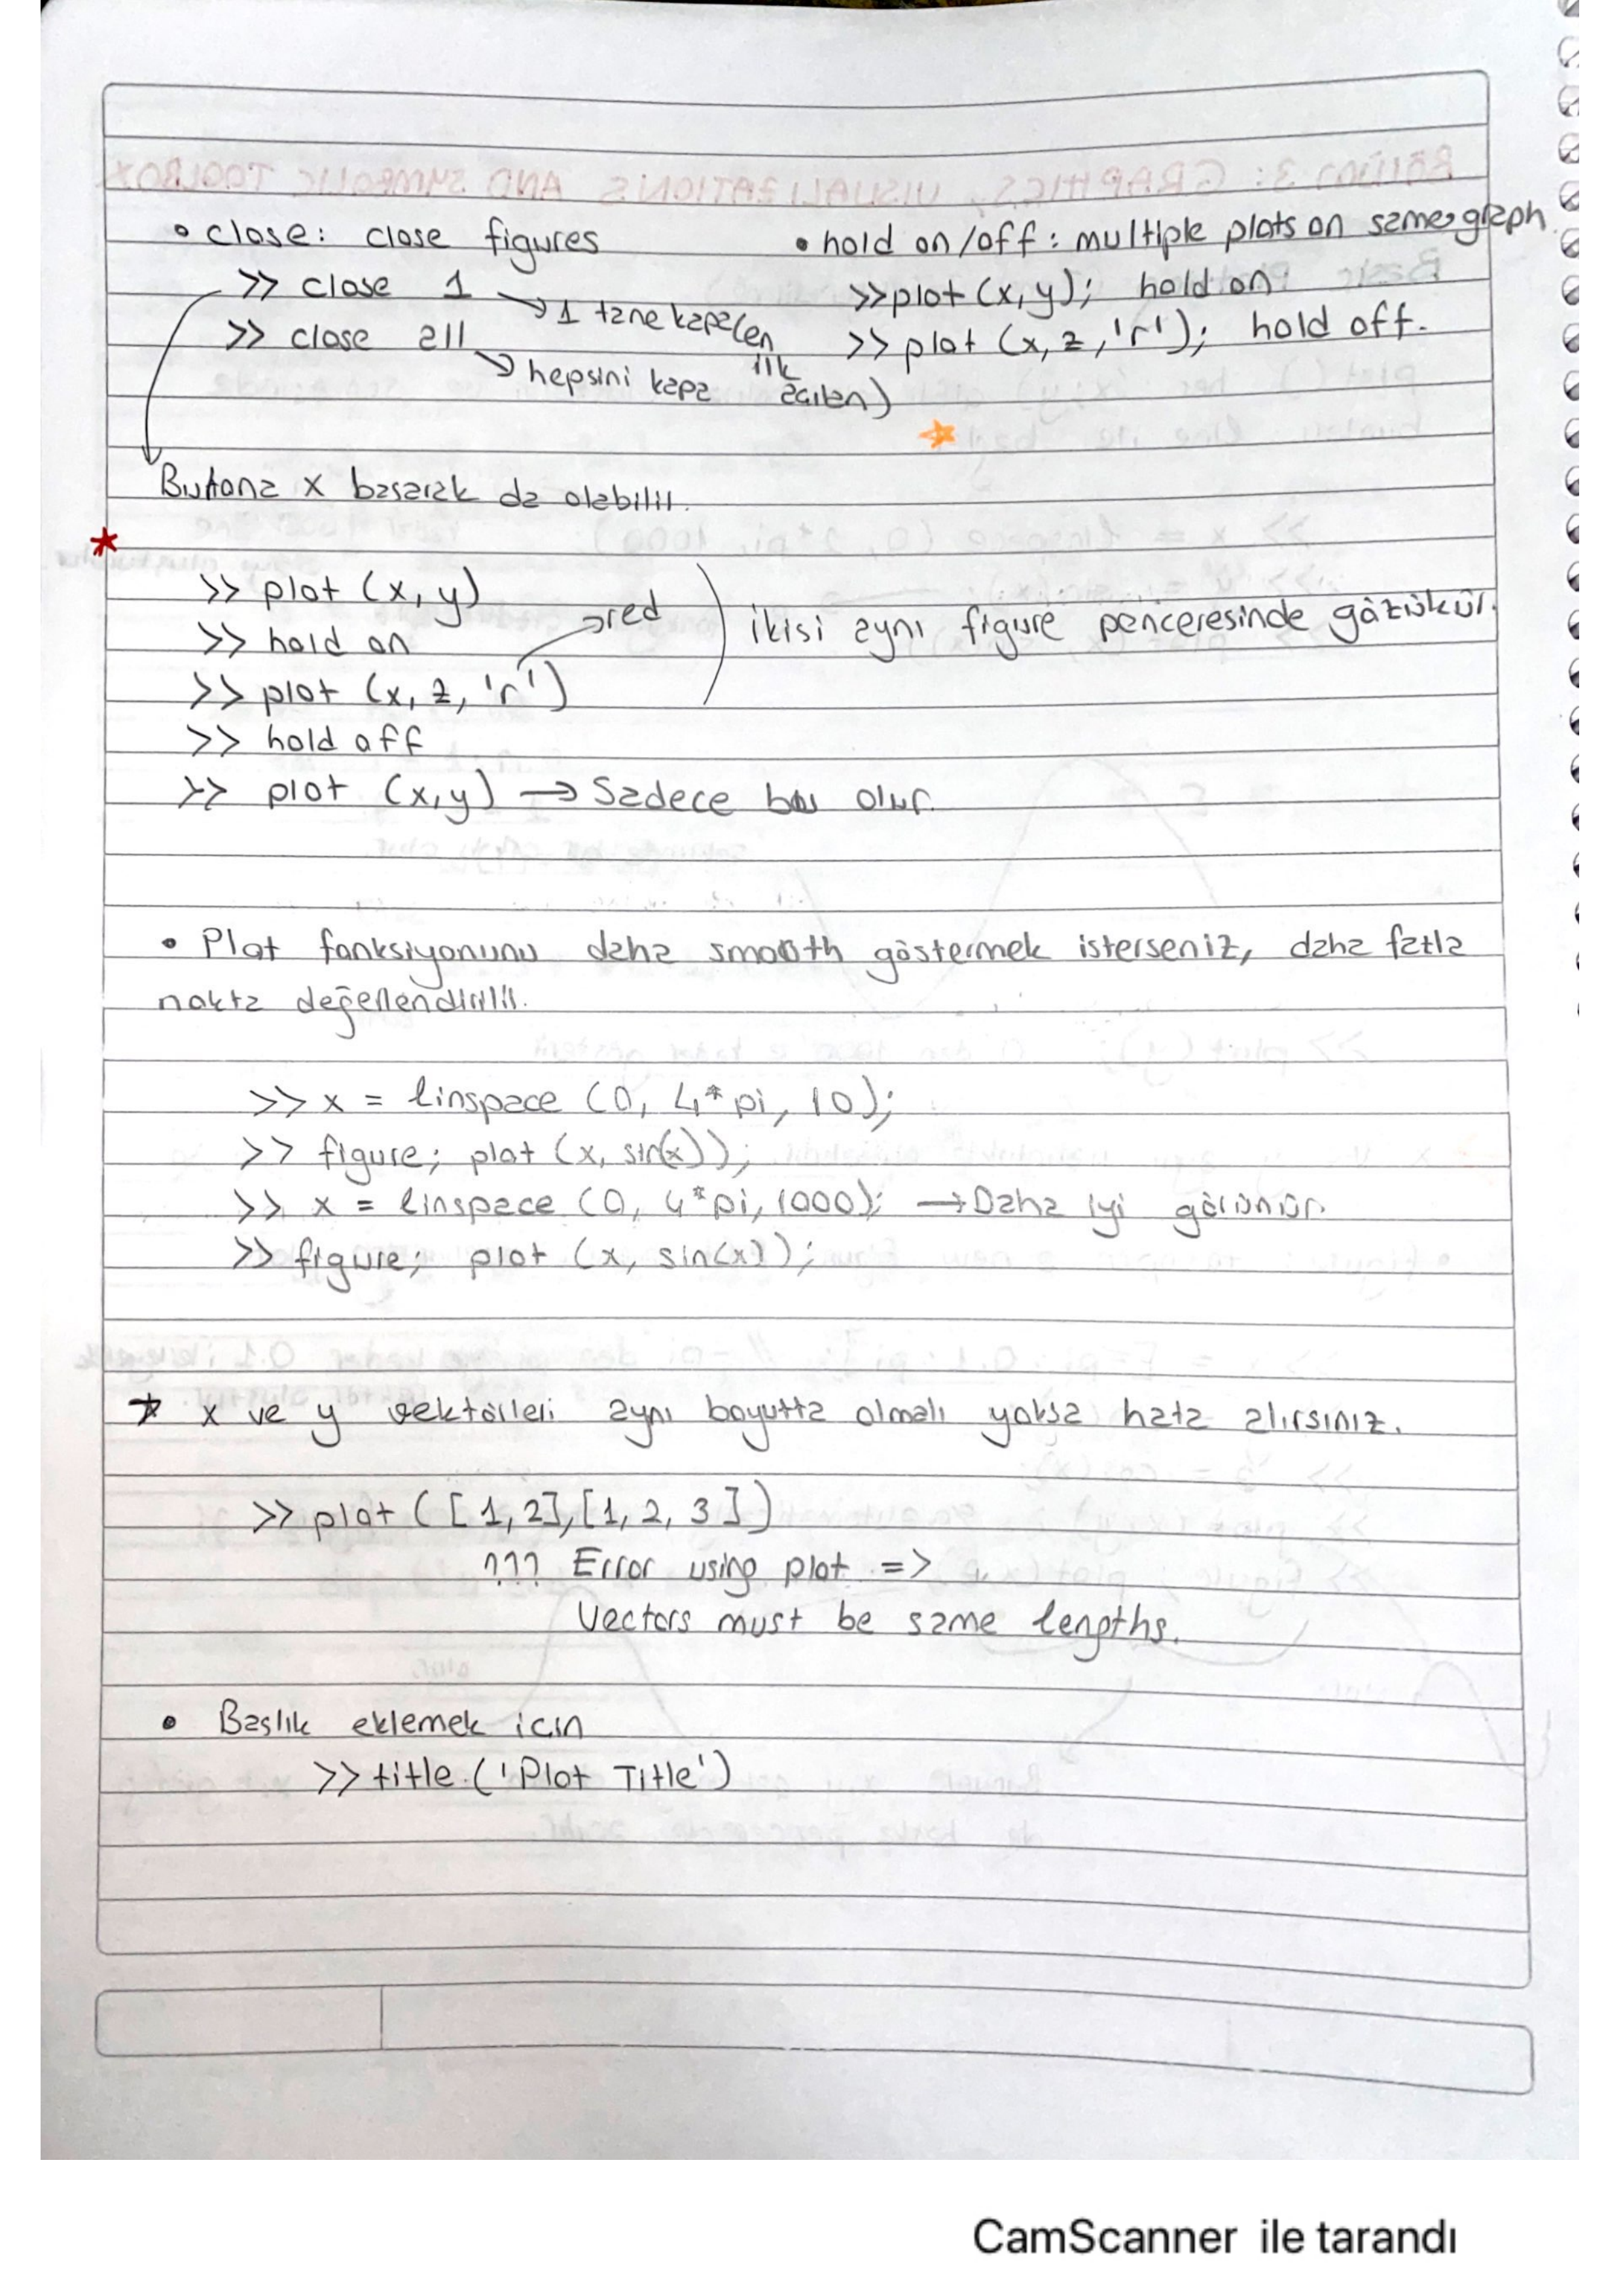 • close: close figures
>> close 1 → 1 tane kapa (en ilk açılan)
>> close all → hepsini kapa
• hold on/off: multiple plots on same graph.
>> plot (x,y); hold on
>> plot (x, z, 'r'); hold off.
Butona x basarak da olabilir.
>> plot (x, y)
>> hold on
>> plot (x, z, 'r') → red
ikisi aynı figure penceresinde gözükür.
>> hold off
>> plot (x,y) → Sadece bu olur.
• Plot fonksiyonunu daha smooth göstermek isterseniz, daha fazla
nokta değerlendirilir.
>> x = linspace (0, 4*pi, 10);
>> figure; plot (x, sin(x));
>> x = linspace (0, 4*pi, 1000); → Daha iyi görünür.
>> figure; plot (x, sin(x));
* x ve y vektörleri aynı boyutta olmalı yoksa hata alırsınız.
>> plot ([1,2],[1, 2, 3])
??? Error using plot =>
Vectors must be same lengths.
• Başlık eklemek için
>> title ('Plot Title')
CamScanner ile tarandı